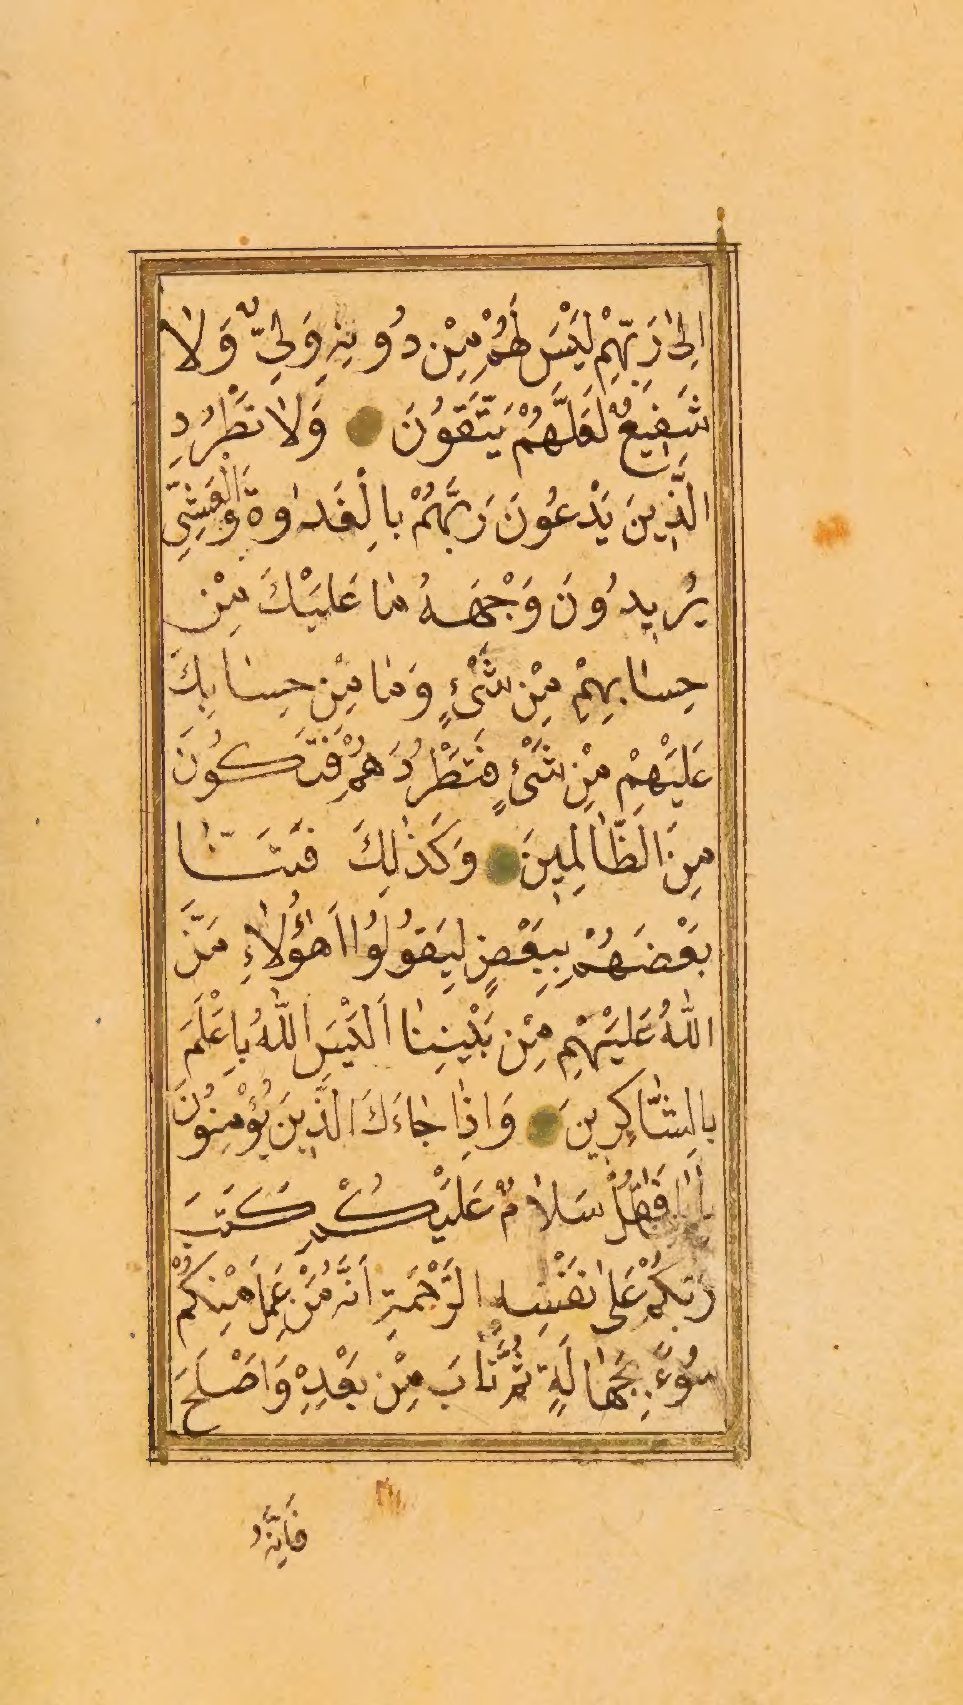 اِلٰى رَبِّهِمْ لَيْسَ لَهُمْ مِنْ دُونِهِ وَلِىٌّ وَلَا
شَفِيعٌ لَعَلَّهُمْ يَتَّقُونَ وَلَا تَطْرُدِ
الَّذِينَ يَدْعُونَ رَبَّهُمْ بِالْغَدٰوةِ وَالْعَشِىِّ
يُرِيدُونَ وَجْهَهُ مَا عَلَيْكَ مِنْ
حِسَابِهِمْ مِنْ شَىْءٍ وَمَا مِنْ حِسَابِكَ
عَلَيْهِمْ مِنْ شَىْءٍ فَتَطْرُدَهُمْ فَتَكُونَ
مِنَ الظَّالِمِينَ وَكَذٰلِكَ فَتَنَّا
بَعْضَهُمْ بِبَعْضٍ لِيَقُولُوا اَهٰؤُلَاءِ مَنَّ
اللّٰهُ عَلَيْهِمْ مِنْ بَيْنِنَا اَلَيْسَ اللّٰهُ بِاَعْلَمَ
بِالشَّاكِرِينَ وَاِذَا جَاءَكَ الَّذِينَ يُؤْمِنُونَ
فَقُلْ سَلَامٌ عَلَيْكُمْ كَتَبَ
رَبُّكُمْ عَلٰى نَفْسِهِ الرَّحْمَةَ اَنَّهُ مَنْ عَمِلَ مِنْكُمْ
سُوءً بِجَهَالَةٍ ثُمَّ تَابَ مِنْ بَعْدِهِ وَاَصْلَحَ
فَاَنَّهُ